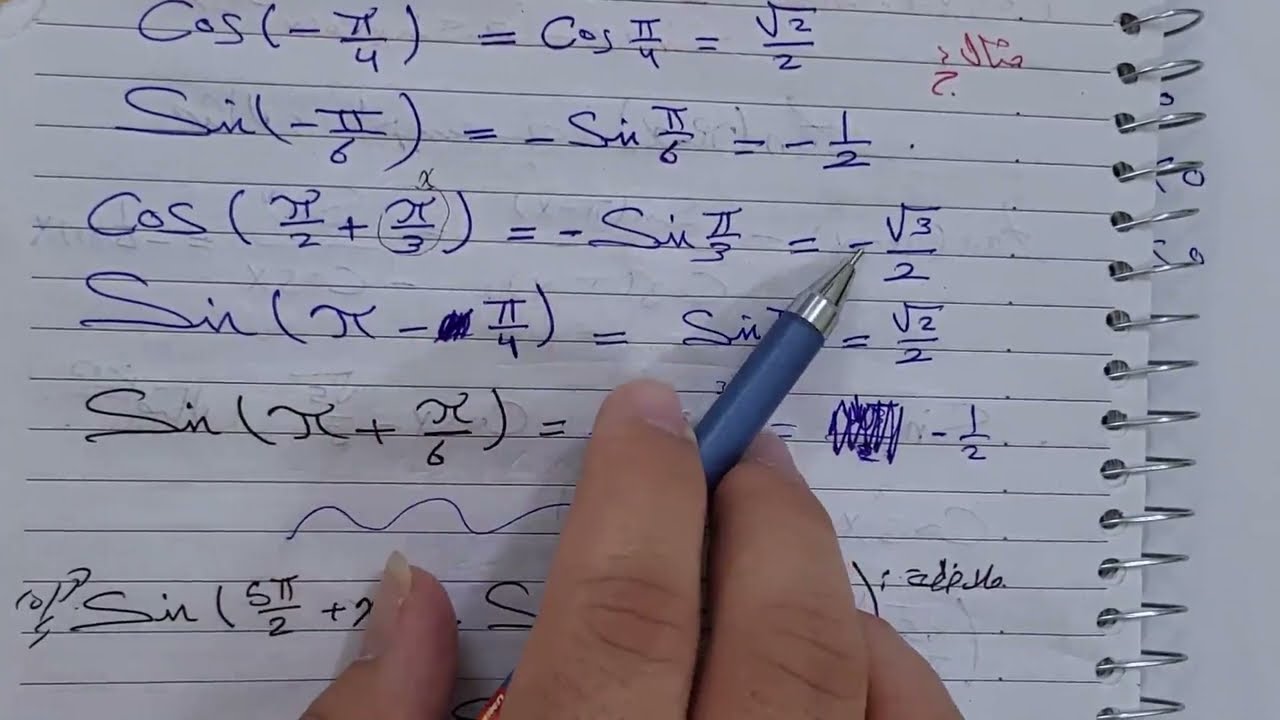 Cos(-π/4) = Cos π/4 = √2/2
مثال:
Sin(-π/6) = -Sin π/6 = -1/2
x
Cos(π/2 + π/3) = -Sin π/3 = -√3/2
Sin(π - π/4) = Sin = √2/2
Sin(π + π/6) = = -1/2
Sin(5π/2 + . S ) :